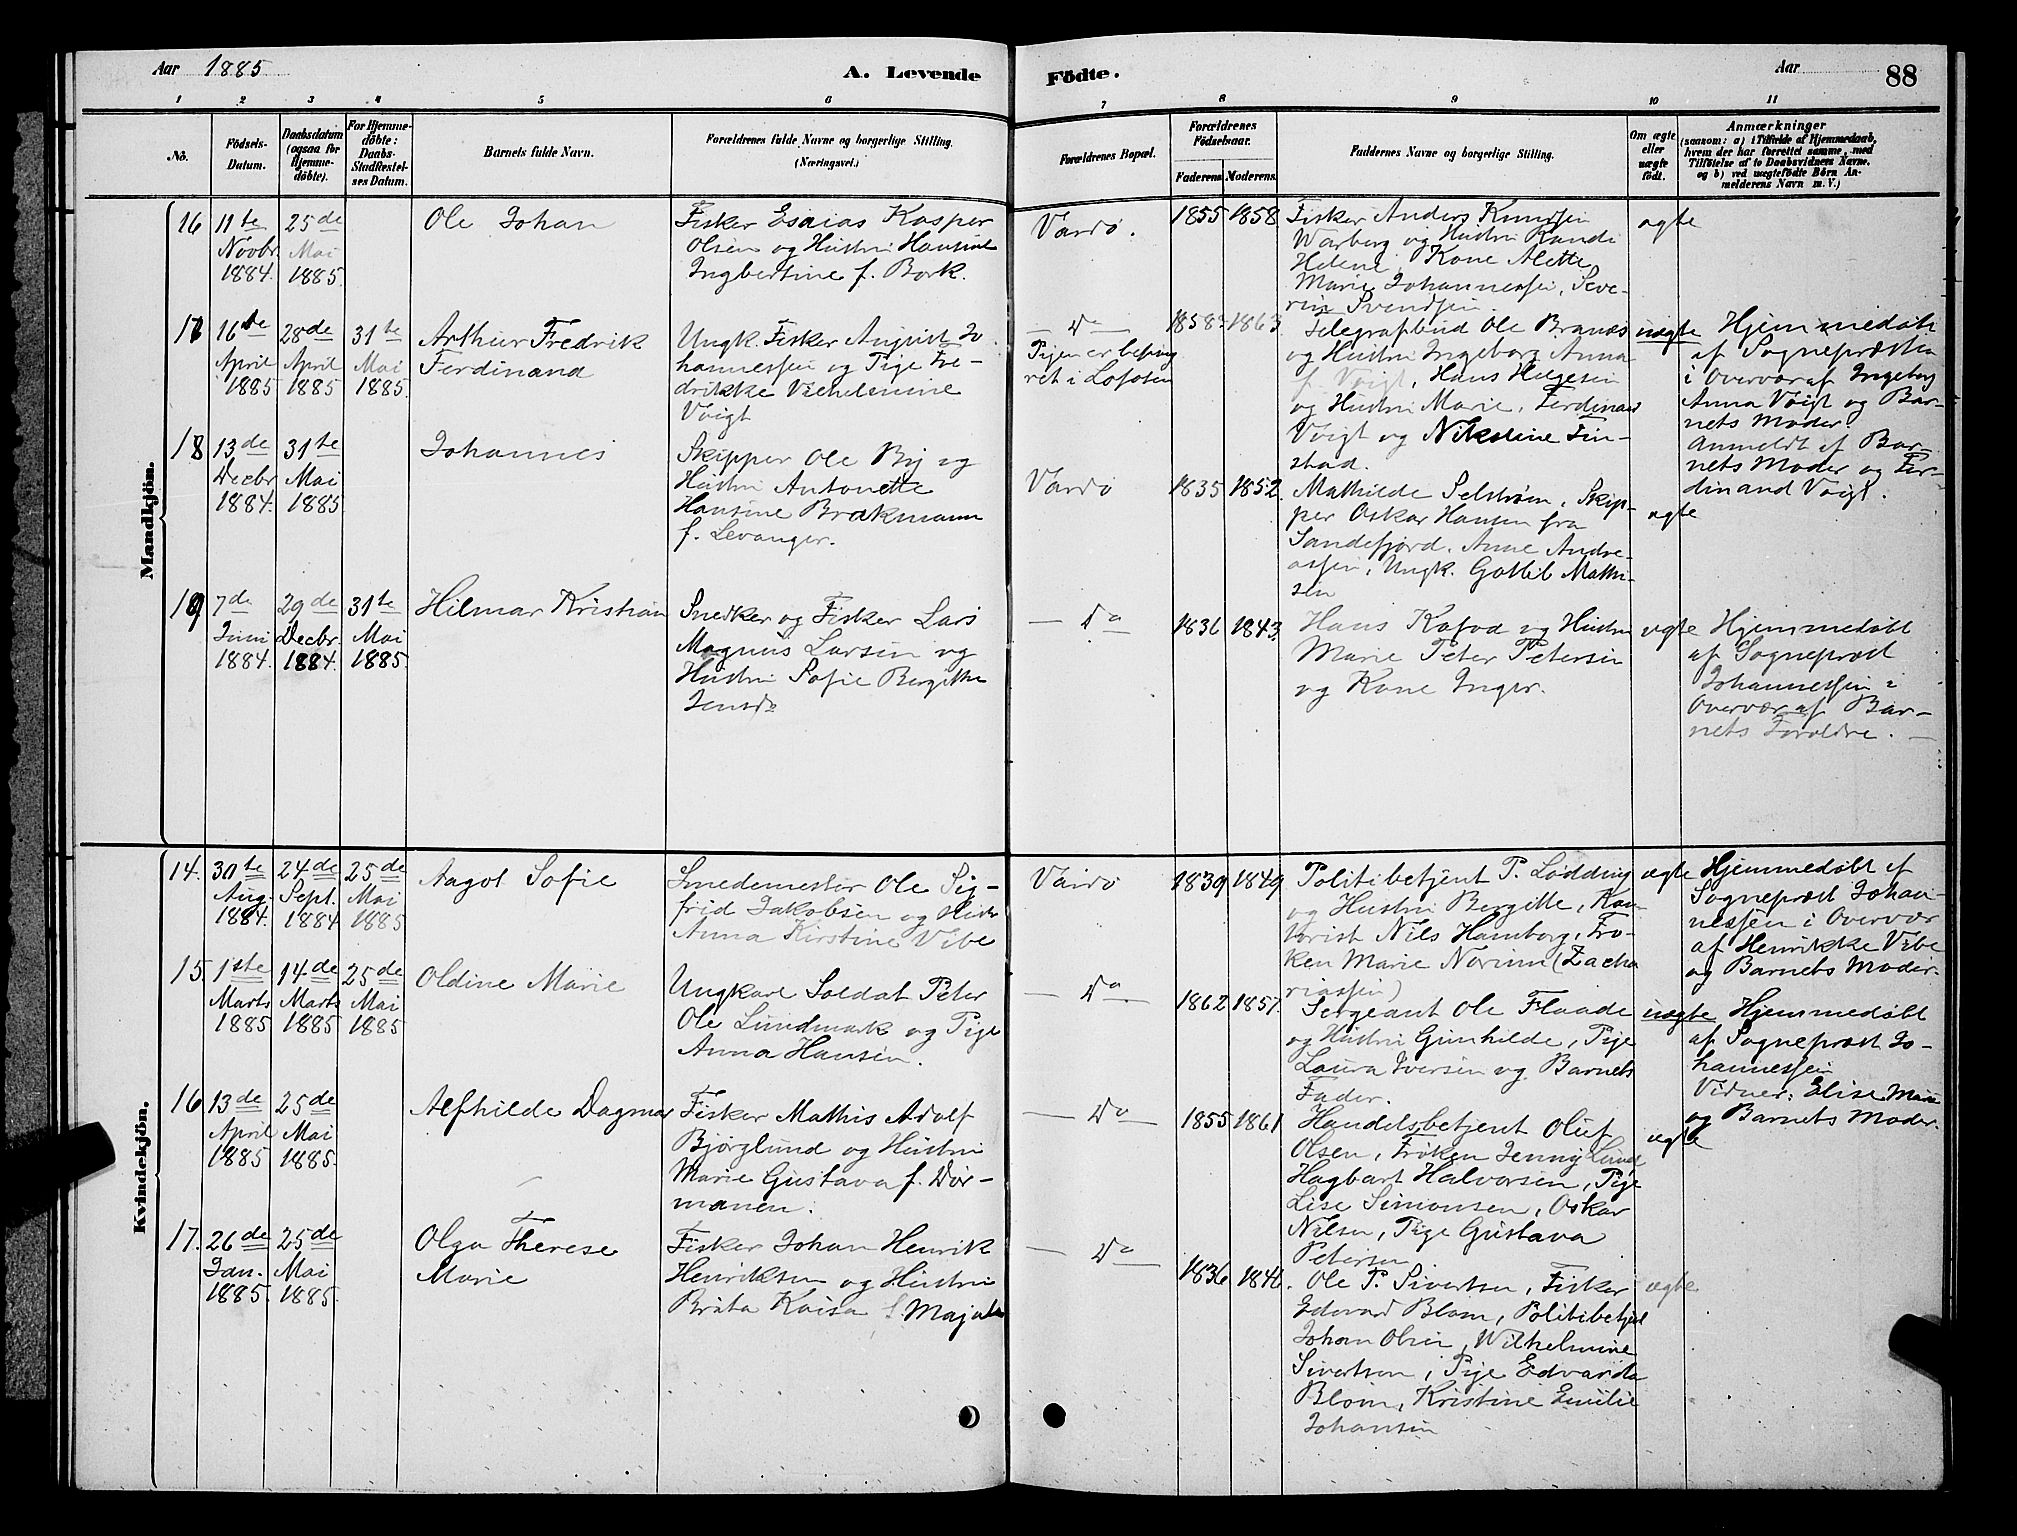 Aar 1885
A. Levende
Födte.
Aar
88
1 2 3 4 5 6 7 8 9 10 11
No.
Födsels-
Datum.
Daabsdatum
(ogsaa for
Hjemme-
döbte).
For Hjemme-
döbte:
Daabs-
Stadfæstel-
ses Datum.
Barnets fulde Navn.
Forældrenes fulde Navne og borgerlige Stilling.
(Næringsvei.)
Forældrenes Bopæl.
Forældrenes
Födselsaar.
Faderens. Moderens.
Faddernes Navne og borgerlige Stilling.
Om ægte
eller
uægte
födt.
Anmærkninger
(saasom: a) i Tilfælde af Hjemmedaab,
hvem der har forrettet samme, med
Tilföielse af to Daabsvidners Navne.
og b) ved uægtefödte Börn An-
melderens Navn m. V.)
Mandkjön.
16
11te
Novbr.
1884.
25de
Mai
1885.
Ole Johan
Fisker Esaias Kasper
Olsen og Hustru Hansine
Ingbertine f. Bork.
Vardø.
1855 1858
Fisker Anders Knudsen
Warberg og Hustru Randi
Helene, Kone Alette
Marie Johannessen, Seve-
rine Svendsen
ægte
17
16de
April
1885
28de
April
1885
31te
Mai
1885.
Arthur Fredrik
Ferdinand
Ungk. Fisker August Jo-
hannessen og Pige Fre-
drikke Vilhelmine
Voigt
— Do —
Pigen er besvang
ret i Lofoten
1858? 1863
Telegrafbud Ole Branæs
og Hustru Ingeborg Anna
f. Voigt, Hans Helgesen
og Hustru Marie, Ferdinand
Voigt og Nikoline Fin-
stad.
uægte
Hjemmedøbt
af Sognepræsten
i Overvær af Ingeborg
Anna Voigt og Bar-
nets Moder.
Anmeldt af Bar-
nets Moder og Fer-
dinand Voigt.
18
13de
Decbr
1884.
31te
Mai
1885
Johannes
Skipper Ole By og
Hustru Antonette
Hansine Brakmann
f. Levanger.
Vardø
1835 1852.
Mathilde Selstrøm, Skip-
per Oskar Hansen fra
Sandefjord, Anne Andre-
assen, Ungk. Gottlib Mathi-
sen
ægte
19
7de
Juni
1884.
29de
Decbr.
1884.
31te
Mai
1885.
Hilmar Kristian
Snedker og Fisker Lars
Magnus Larsen og
Hustru Sofie Bergitte
Jensdr
— Do —
1836 1843.
Hans Kofod og Hustru
Marie Peter Petersen
og Kone Inger.
ægte
Hjemmedøbt
af Sognepræst
Johannessen i
Overvær af Bar-
nets Forældre. —
Kvindekjön.
14.
30te
Aug.
1884.
24de
Sept.
1884
25de
Mai
1885
Aagot Sofie
Smedemester Ole Sig-
frid Jakobsen og Hustr
Anna Kirstine Vibe
Vardø
1839 1849
Politibetjent P. Lødding
og Hustru Bergitte, Kon-
torist Nils Hamborg, Frø-
ken Marie Norum (Zacha
riassen)
ægte
Hjemmedøbt af
Sognepræst Johan-
nessen i Overvær
af Henrikke Vibe
og Barnets Moder.
15.
1ste
Marts
1885
14de
Marts
1885
25de
Mai
1885
Oldine Marie
Ungkarl Soldat Peter
Ole Lundmark og Pige
Anna Hansen.
— Do —
1862 1857.
Sergeant Ole Flaade
og Hustru Gunhilde, Pige
Laura Iversen og Barnets
Fader.
uægte
Hjemmedøbt
af Sognepræst Jo-
hannessen
Vidner: Elise
og Barnets Moder.
16
13de
April
1885
25de
Mai
1885.
Alfhilde Dagmar
Fisker Mathis Adolf
Bjørglund og Hustru
Marie Gustava f. Dør-
manen.
— Do —
1855 1861
Handelsbetjent Oluf
Olsen, Frøken Jenny Lund
Hagbart Halvorsen, Pige
Lise Simonsen, Oskar
Nilsen, Pige Gustava
Petersen
ægte
17.
26de
Jan.
1885.
25de
Mai
1885.
Olga Therese
Marie
Fisker Johan Henrik
Henriksen og Hustru
Brita Kaisa f.
— Do —
1836 1846.
Ole P. Sivertsen, Fisker
Edvard Blom, Politibetjent
Johan Olsen, Wilhelmine
Sivertsen, Pige Edvarda
Blom, Kristine Emilie
Johansen
ægte